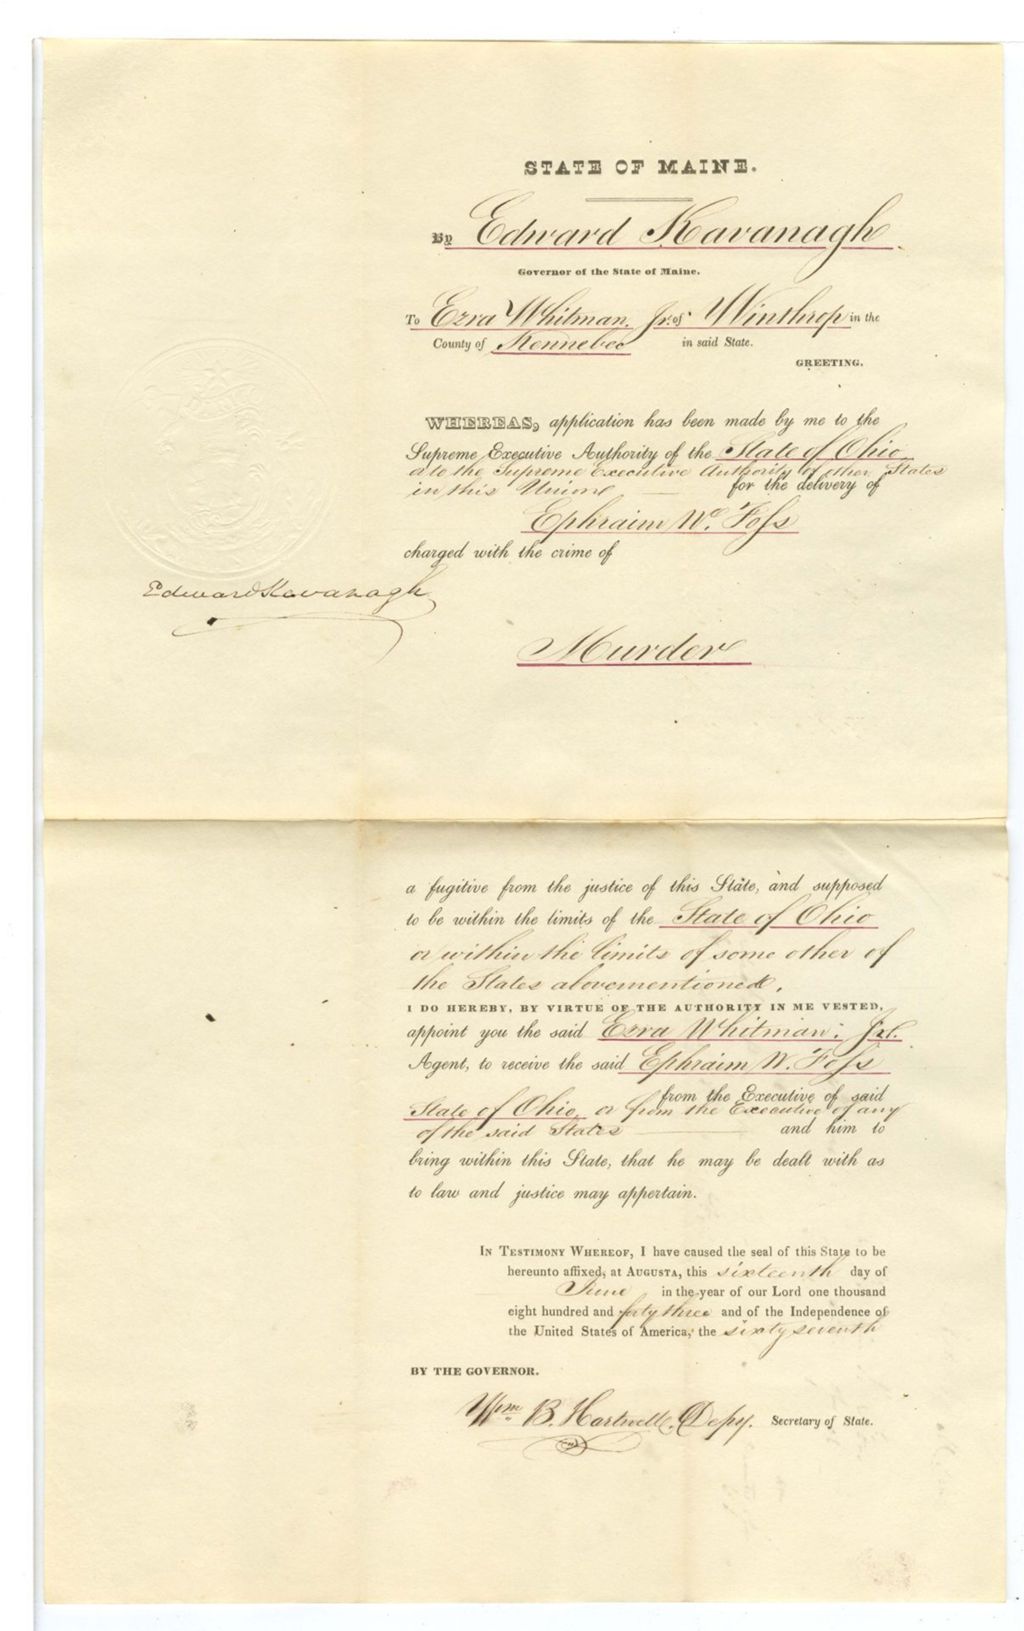 STATE OF MAINE.
By Edward Kavanagh
Governor of the State of Maine.
To Ezra Whitman, Jr. of Winthrop in the
County of Kennebec in said State.
GREETING.
WHEREAS, application has been made by me to the
Supreme Executive Authority of the State of Ohio
& to the Supreme Executive Authority of other States
in this Union for the delivery of
Ephraim W. Foss
charged with the crime of
Edward Kavanagh
Murder
a fugitive from the justice of this State, and supposed
to be within the limits of the State of Ohio
or within the limits of some other of
the States abovementioned.
I DO HEREBY, BY VIRTUE OF THE AUTHORITY IN ME VESTED,
appoint you the said Ezra Whitman, Jr.
Agent, to receive the said Ephraim W. Foss
from the Executive of said
State of Ohio, or from the Executive of any
of the said States and him to
bring within this State, that he may be dealt with as
to law and justice may appertain.
IN TESTIMONY WHEREOF, I have caused the seal of this State to be
hereunto affixed, at AUGUSTA, this sixteenth day of
June in the year of our Lord one thousand
eight hundred and forty three and of the Independence of
the United States of America, the sixty seventh
BY THE GOVERNOR.
Wm B. Hartwell, Depy. Secretary of State.